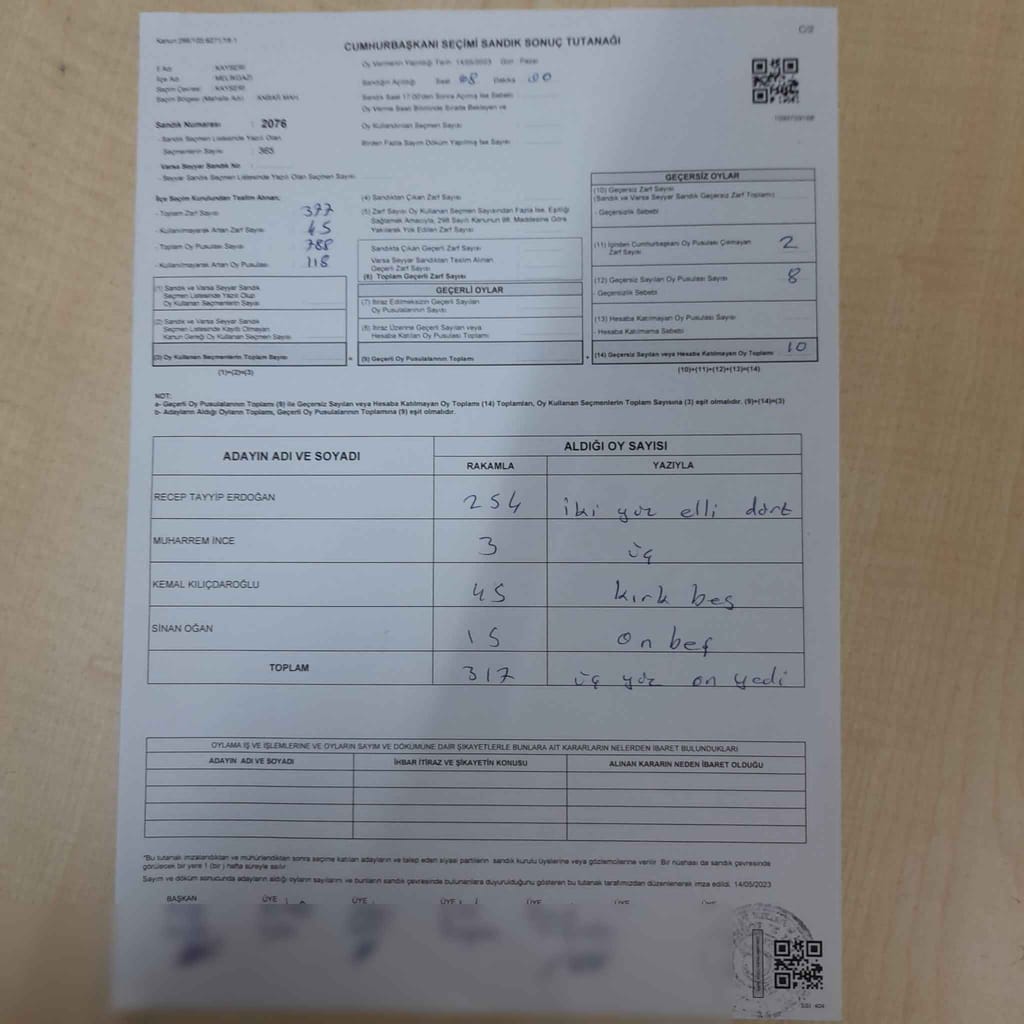 Kanun:298/105 6271/18-1
C/2
CUMHURBAŞKANI SEÇİMİ SANDIK SONUÇ TUTANAĞI
İl Adı : KAYSERİ
İlçe Adı : MELİKGAZİ
Seçim Çevresi : KAYSERİ
Seçim Bölgesi (Mahalle Adı) : ANBAR MAH.
Sandık Numarası : 2076
- Sandık Seçmen Listesinde Yazılı Olan
Seçmenlerin Sayısı : 365
Varsa Seyyar Sandık No :
- Seyyar Sandık Seçmen Listesinde Yazılı Olan Seçmen Sayısı
Oy Vermenin Yapıldığı Tarih: 14/05/2023 Gün: Pazar
Sandığın Açıldığı Saat 08 Dakika 00
Sandık Saat 17:00'den Sonra Açılmış İse Sebebi
Oy Verme Saati Bitiminde Sırada Bekleyen ve
Oy Kullandırılan Seçmen Sayısı
Birden Fazla Sayım Döküm Yapılmış İse Sayısı
İlçe Seçim Kurulundan Teslim Alınan;
- Toplam Zarf Sayısı 377
- Kullanılmayarak Artan Zarf Sayısı 45
- Toplam Oy Pusulası Sayısı 788
- Kullanılmayarak Artan Oy Pusulası 118
(1) Sandık ve Varsa Seyyar Sandık
Seçmen Listesinde Yazılı Olup
Oy Kullanan Seçmenlerin Sayısı
(2) Sandık ve Varsa Seyyar Sandık
Seçmen Listesinde Kayıtlı Olmayan
Kanun Gereği Oy Kullanan Seçmen Sayısı
(3) Oy Kullanan Seçmenlerin Toplam Sayısı
(1)+(2)=(3)
=
(4) Sandıktan Çıkan Zarf Sayısı
(5) Zarf Sayısı Oy Kullanan Seçmen Sayısından Fazla İse, Eşitliği
Sağlamak Amacıyla, 298 Sayılı Kanunun 98. Maddesine Göre
Yakılarak Yok Edilen Zarf Sayısı
Sandıkta Çıkan Geçerli Zarf Sayısı
Varsa Seyyar Sandıktan Teslim Alınan
Geçerli Zarf Sayısı
(6) Toplam Geçerli Zarf Sayısı
GEÇERLİ OYLAR
(7) İtiraz Edilmeksizin Geçerli Sayılan
Oy Pusulalarının Sayısı
(8) İtiraz Üzerine Geçerli Sayılan veya
Hesaba Katılan Oy Pusulası Toplamı
(9) Geçerli Oy Pusulalarının Toplamı
+
GEÇERSİZ OYLAR
(10) Geçersiz Zarf Sayısı
(Sandık ve Varsa Seyyar Sandık Geçersiz Zarf Toplamı)
- Geçersizlik Sebebi
(11) İçinden Cumhurbaşkanı Oy Pusulası Çıkmayan
Zarf Sayısı 2
(12) Geçersiz Sayılan Oy Pusulası Sayısı 8
- Geçersizlik Sebebi
(13) Hesaba Katılmayan Oy Pusulası Sayısı
- Hesaba Katılmama Sebebi
(14) Geçersiz Sayılan veya Hesaba Katılmayan Oy Toplamı 10
(10)+(11)+(12)+(13)=(14)
NOT:
a- Geçerli Oy Pusulalarının Toplamı (9) ile Geçersiz Sayılan veya Hesaba Katılmayan Oy Toplamı (14) Toplamları, Oy Kullanan Seçmenlerin Toplam Sayısına (3) eşit olmalıdır. (9)+(14)=(3)
b- Adayların Aldığı Oyların Toplamı, Geçerli Oy Pusulalarının Toplamına (9) eşit olmalıdır.
ADAYIN ADI VE SOYADI ALDIĞI OY SAYISI
RAKAMLA YAZIYLA
RECEP TAYYİP ERDOĞAN 254 iki yüz elli dört
MUHARREM İNCE 3 üç
KEMAL KILIÇDAROĞLU 45 kırk beş
SİNAN OĞAN 15 on beş
TOPLAM 317 üç yüz on yedi
OYLAMA İŞ VE İŞLEMLERİNE VE OYLARIN SAYIM VE DÖKÜMÜNE DAİR ŞİKAYETLERLE BUNLARA AİT KARARLARIN NELERDEN İBARET BULUNDUKLARI
ADAYIN ADI VE SOYADI İHBAR İTİRAZ VE ŞİKAYETİN KONUSU ALINAN KARARIN NEDEN İBARET OLDUĞU
*Bu tutanak imzalandıktan ve mühürlendikten sonra seçime katılan adayların ve talep eden siyasi partilerin sandık kurulu üyelerine veya gözlemcilerine verilir. Bir nüshası da sandık çevresinde
görülecek bir yere 1 (bir) hafta süreyle asılır.
Sayım ve döküm sonucunda adayların aldığı oyların sayılarını ve bunların sandık çevresinde bulunanlara duyurulduğunu gösteren bu tutanak tarafımızdan düzenlenerek imza edildi. 14/05/2023
BAŞKAN ÜYE ÜYE ÜYE ÜYE ÜYE ÜYE